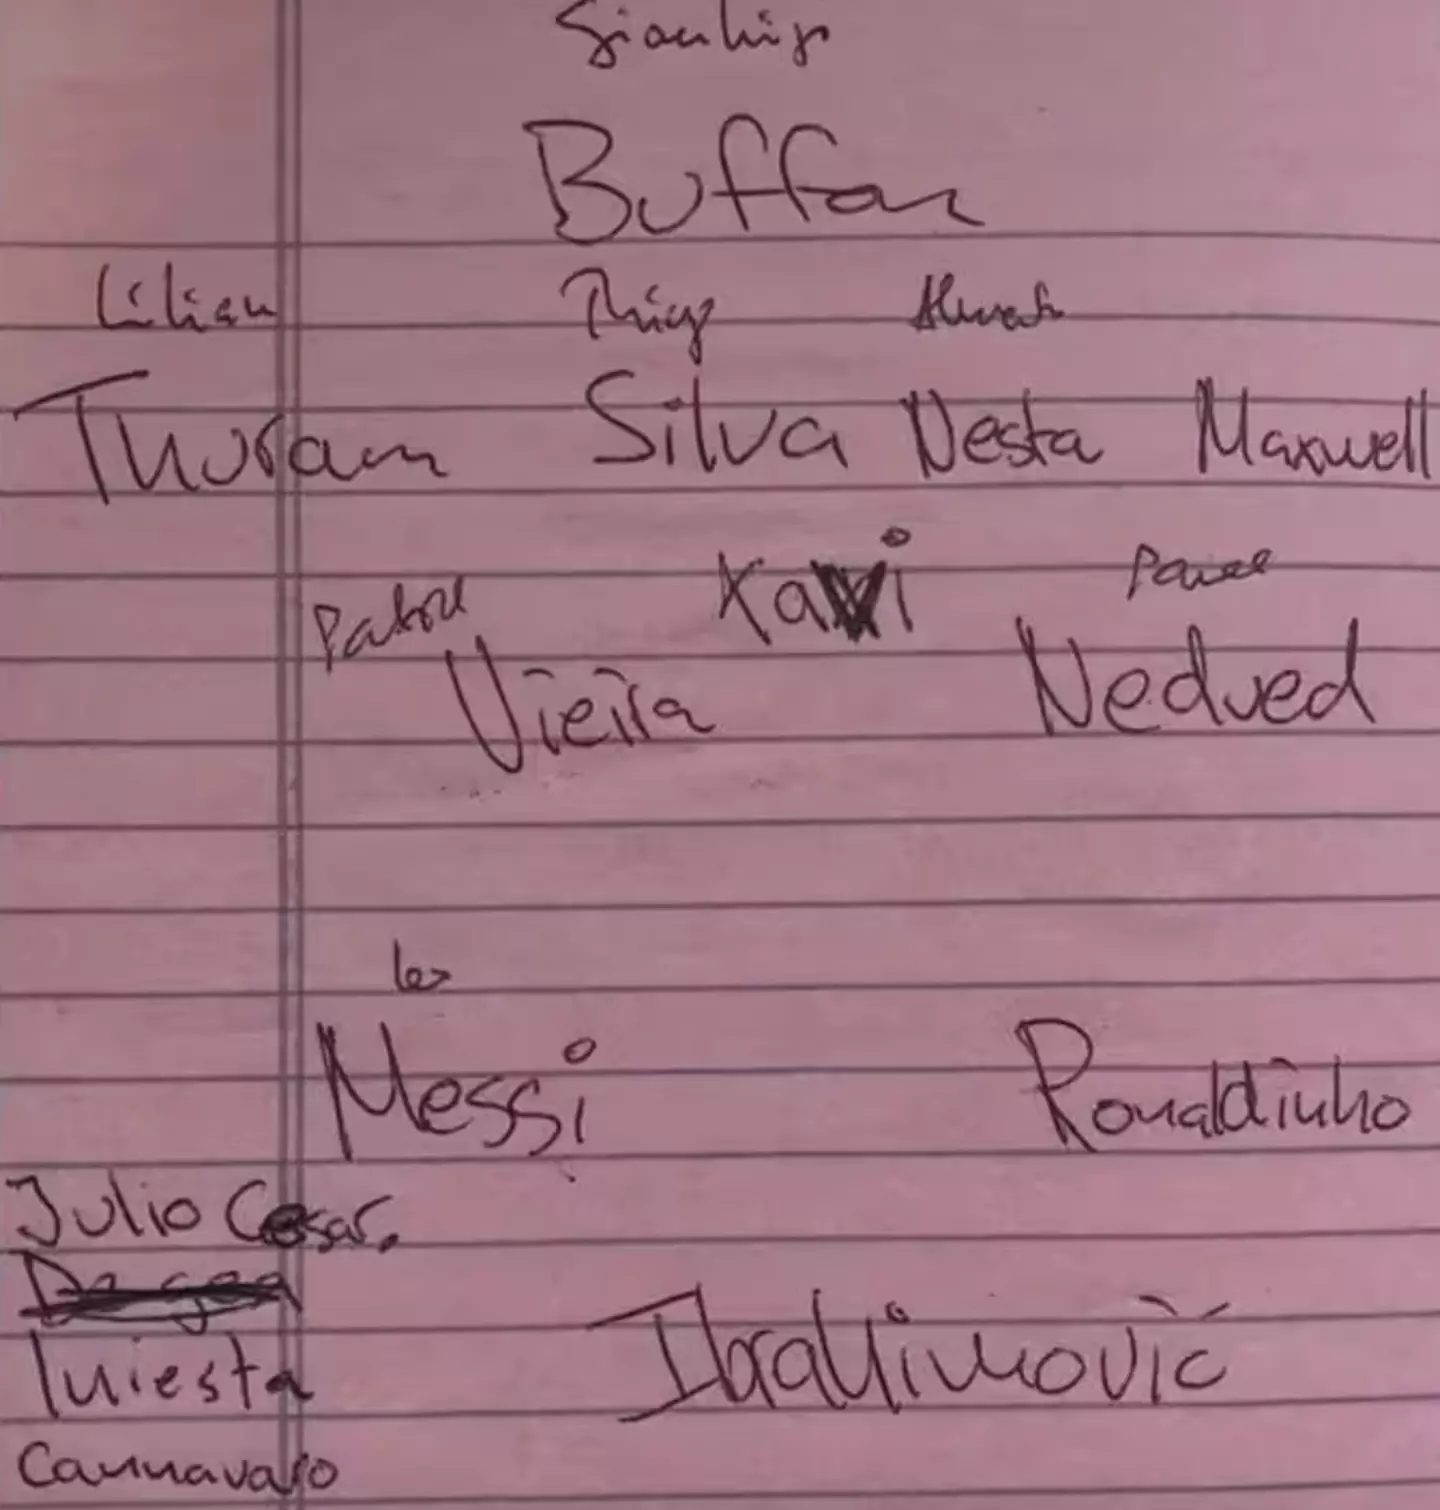 Gianluigi
Buffon
Lilian Thiago
Thuram Silva Nesta Maxwell
Xavi Pavel
Patrick
Vieira Nedved
Leo
Messi Ronaldinho
Julio Cesar.
Iniesta Ibrahimović
Cannavaro